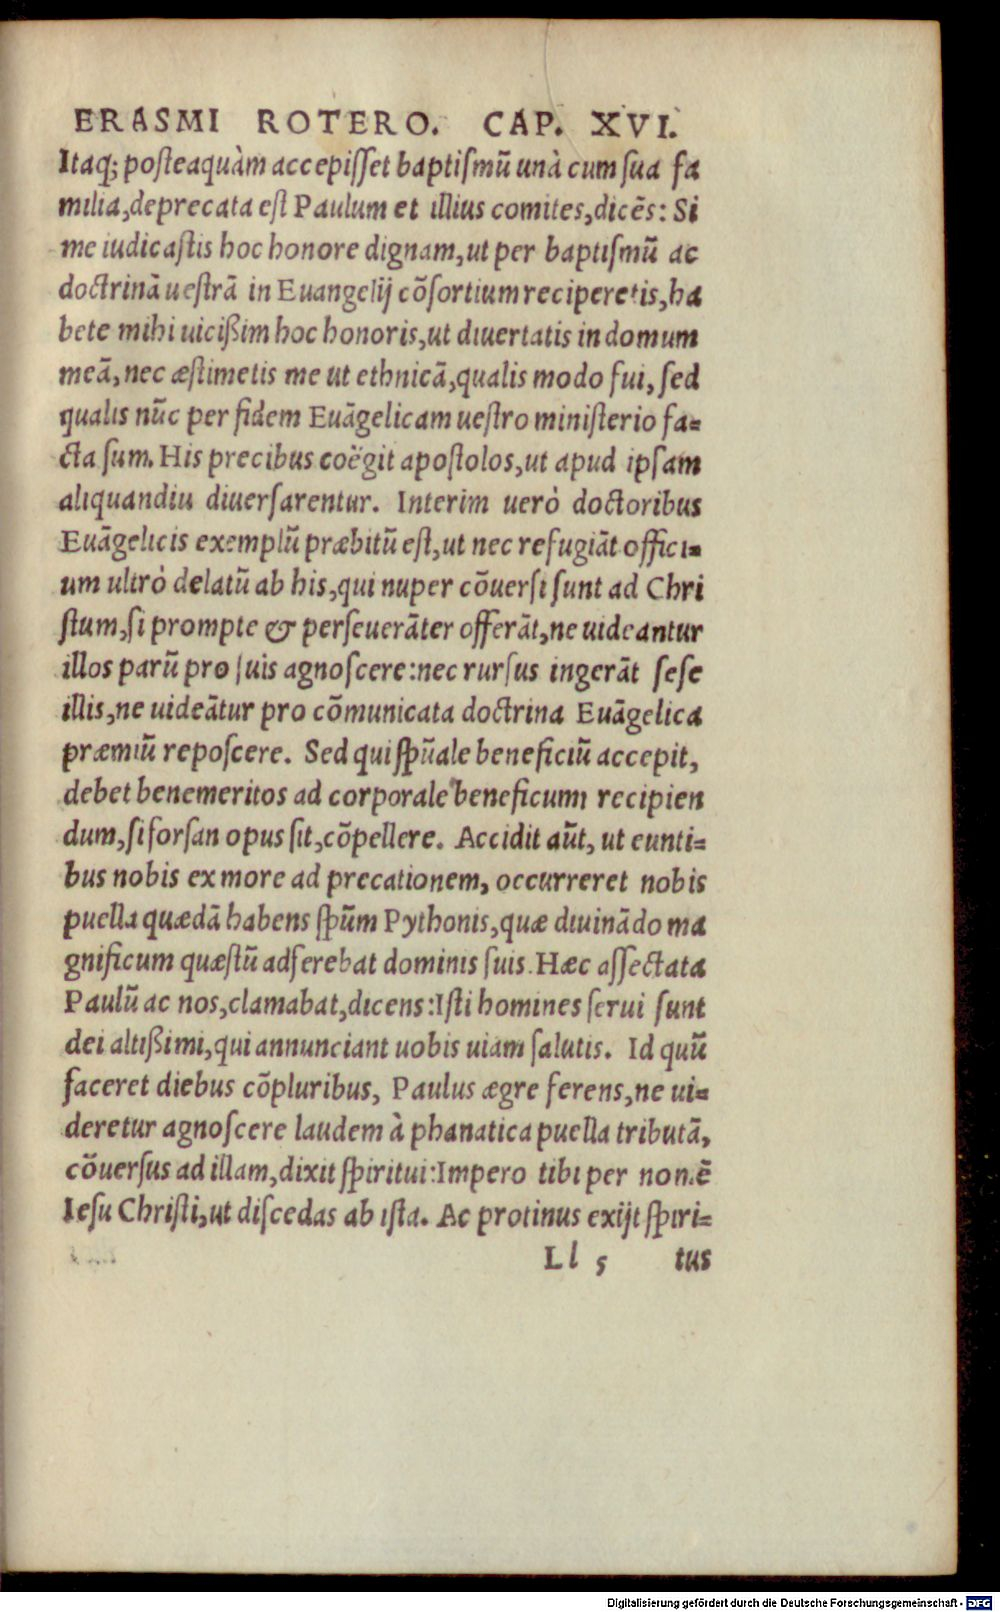 ERASMI ROTERO. CAP. XVI.
Itaq; posteaquàm accepisset baptismū unà cum sua fa
milia, deprecata est Paulum et illius comites, dicēs: Si
me iudicastis hoc honore dignam, ut per baptismū ac
doctrinā uestrā in Euangelij cōsortium reciperetis, ha
bete mihi uicißim hoc honoris, ut diuertatis in domum
meā, nec æstimetis me ut ethnicā, qualis modo fui, sed
qualis nūc per fidem Euāgelicam uestro ministerio fa=
cta sum. His precibus coëgit apostolos, ut apud ipsam
aliquandiu diuersarentur. Interim uerò doctoribus
Euāgelicis exemplū præbitū est, ut nec refugiāt offici=
um ultrò delatū ab his, qui nuper cōuersi sunt ad Chri
stum, si prompte & perseuerāter offerāt, ne uideantur
illos parū pro suis agnoscere: nec rursus ingerāt sese
illis, ne uideātur pro cōmunicata doctrina Euāgelica
præmiū reposcere. Sed qui spūale beneficiū accepit,
debet benemeritos ad corporale beneficium recipien
dum, si forsan opus sit, cōpellere. Accidit aūt, ut eunti=
bus nobis ex more ad precationem, occurreret nobis
puella quædā habens spūm Pythonis, quæ diuinādo ma
gnificum quæstū adferebat dominis suis. Hæc assectata
Paulū ac nos, clamabat, dicens: Isti homines serui sunt
dei altißimi, qui annunciant uobis uiam salutis. Id quū
faceret diebus cōpluribus, Paulus ægre ferens, ne ui=
deretur agnoscere laudem à phanatica puella tributā,
cōuersus ad illam, dixit spiritui: Impero tibi per nomē
Iesu Christi, ut discedas ab ista. Ac protinus exijt spiri=
Ll 5 tus
Digitalisierung gefördert durch die Deutsche Forschungsgemeinschaft - DFG